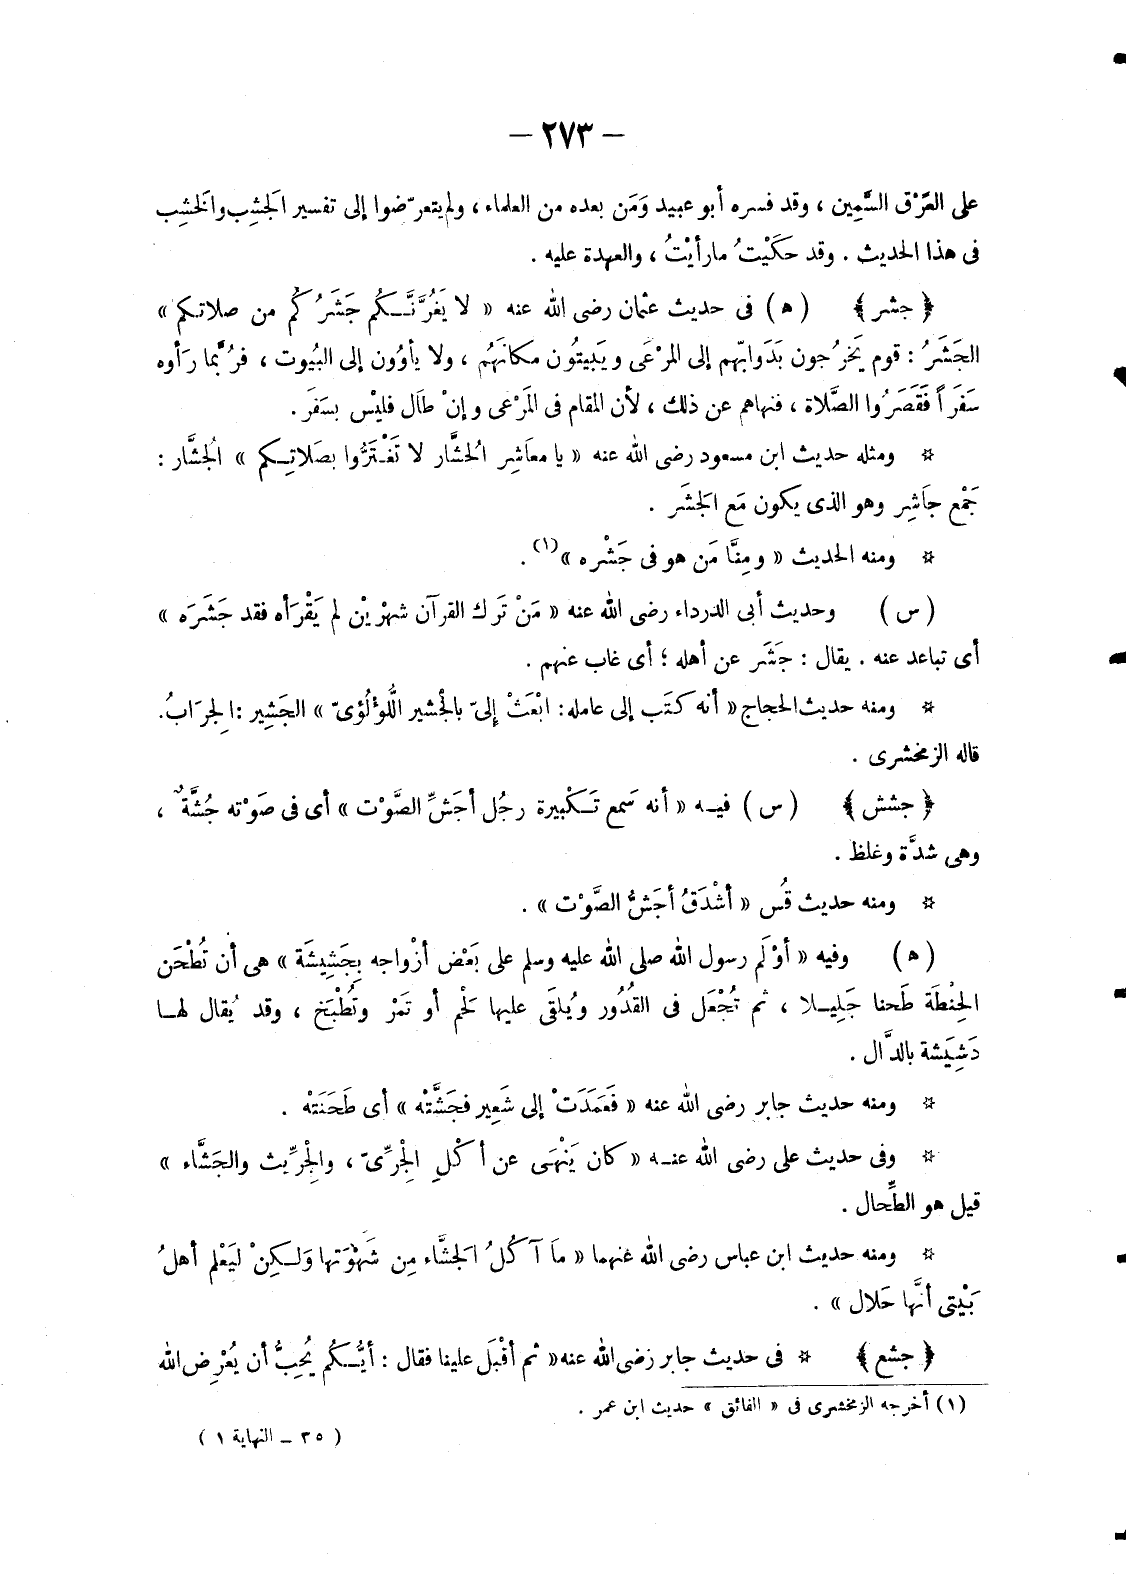 — ٢٧٣ —
على العَرْق السَّمِين ، وقد فسره أبو عبيد وَمَن بعده من العلماء ، ولم يتعرّضوا إلى تفسير الجَشِب والخَشِب
فى هذا الحديث . وقد حكَيْتُ ما رأيْتُ ، والعهدة عليه .
﴿ جشر ﴾ ( ه ) فى حديث عثمان رضى الله عنه « لا يَغُرَّنَّكُم جَشَرُكُم من صلاتكم »
الجَشَرُ : قوم يَخرُجون بدَوابّهم إلى المرْعَى ويَبيتُون مكانَهُم ، ولا يأوُون إلى البُيوت ، فرُبَّما رَأوه
سَفَراً فَقَصَرُوا الصَّلاة ، فنهاهم عن ذلك ، لأن المقام فى المَرْعى وإنْ طَال فليْس بسَفَر .
* ومثله حديث ابن مسعود رضى الله عنه « يا معاَشِر الجشَّار لا تَغْتَرُّوا بصَلاتِكم » الجُشَّار :
جَمْع جاَشِر وهو الذى يكون مَع الجَشَر .
* ومنه الحديث « ومِنَّا مَن هو فى جَشْره »(١) .
( س ) وحديث أبى الدرداء رضى الله عنه « مَنْ تَرك القرآن شهرْيْن لم يَقْرَأه فقد جَشَرَه »
أى تباعد عنه . يقال : جَشَر عن أهله ؛ أى غاب عنهم .
* ومنه حديث الحجاج « أنه كتَب إلى عامله : ابْعَثْ إلىّ بالجْشير اللُّؤلُؤىّ » الجَشِير : الجِرَابُ .
قاله الزمخشرى .
﴿ جشش ﴾ ( س ) فيه « أنه سَمع تَكْبيرة رجُل أجَشِّ الصَّوْت » أى فى صَوْته جُشَّةٌ ،
وهى شدَّة وغلظ .
* ومنه حديث قُس « أشْدَقُ أجَشُّ الصَّوْت » .
( ه ) وفيه « أوْلَم رسول الله صلى الله عليه وسلم على بَعْض أزْواجه بِجَشِيشَة » هى أن تُطْحَن
الحِنْطَة طَحنا جَلِيلا ، ثم تُجْعَل فى القُدُور ويُلقَى عليها لَحْم أو تَمْر وتُطْبَخ ، وقد يُقال لها
دَشِيَشة بالدَّال .
* ومنه حديث جابر رضى الله عنه « فَعَمَدَتْ إلى شَعِير فجَشَّتْه » أى طَحَنَتْه .
* وفى حديث على رضى الله عنه « كان يَنْهَى عن أكْلِ الجْرِّىّ ، والجْرِّيث والجَشَّاء »
قيل هو الطِّحال .
* ومنه حديث ابن عباس رضى الله عنهما « مَا آكُلُ الجَشَّاء مِن شَهْوَتها وَلكِنْ ليَعْلم أهلُ
بَيْتى أنَّها حَلال » .
﴿ جشع ﴾ * فى حديث جابر رضى الله عنه « ثم أقْبَل علينا فقال : أيُّكُم يُحِبُّ أن يُعْرِض الله
(١) أخرجه الزمخشرى فى « الفائق » حديث ابن عمر .
( ٣٥ ــ النهاية ١ )